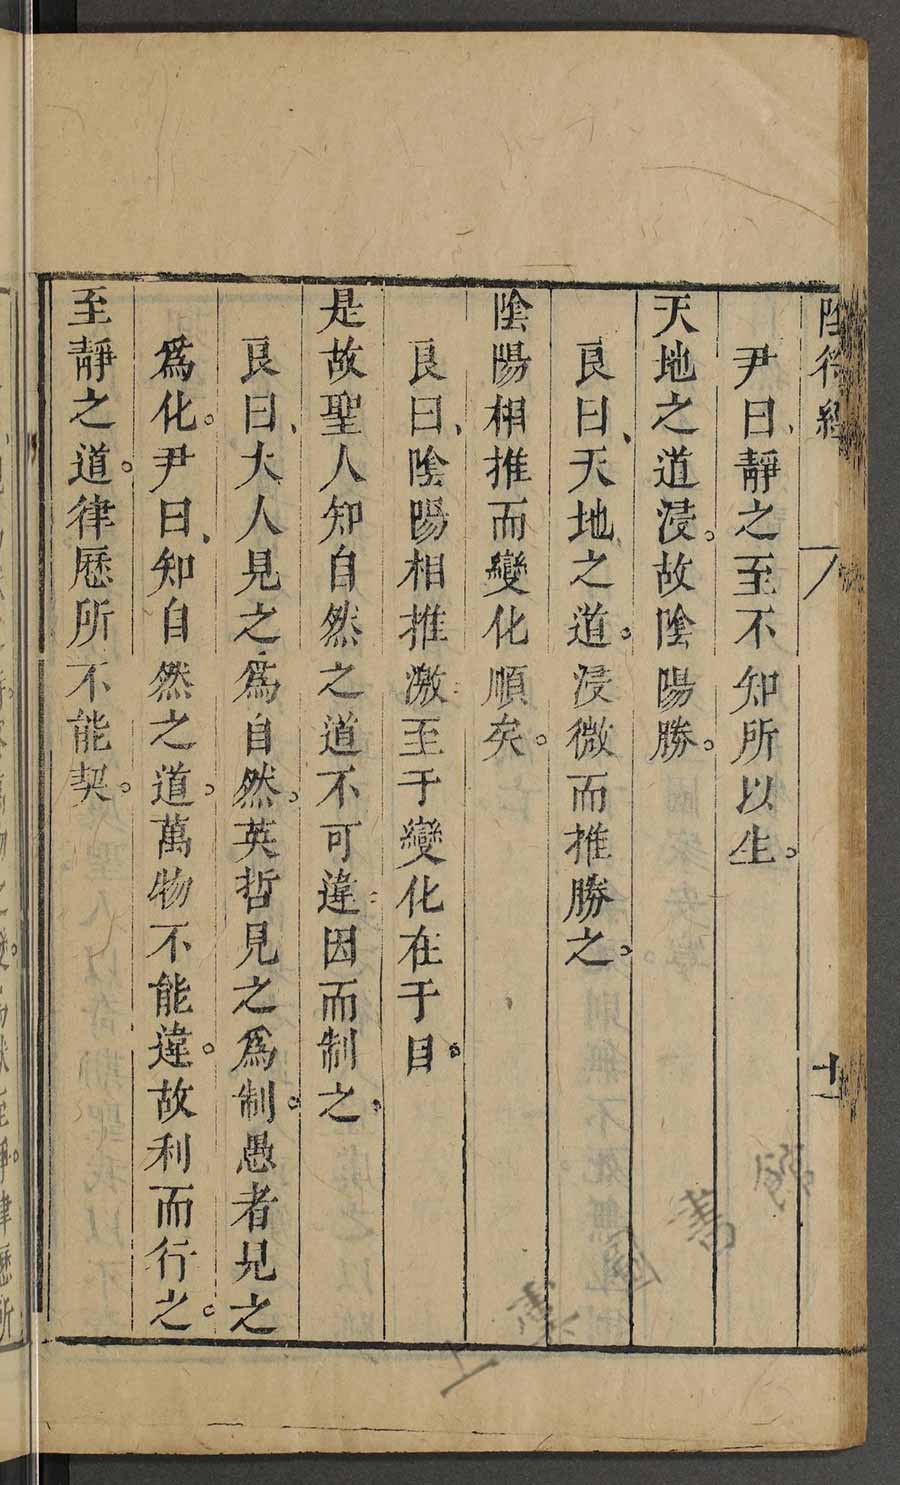 陰符經
十一
尹曰、靜之至不知所以生。
天地之道浸。故陰陽勝。
良曰、天地之道。浸微而推勝之。
陰陽相推而變化順矣。
良曰、陰陽相推激至于變化在于目。
是故聖人知自然之道不可違因而制之。
良曰、大人見之爲自然。英哲見之爲制。愚者見之
爲化。尹曰、知自然之道。萬物不能違。故利而行之。
至靜之道。律曆所不能契。